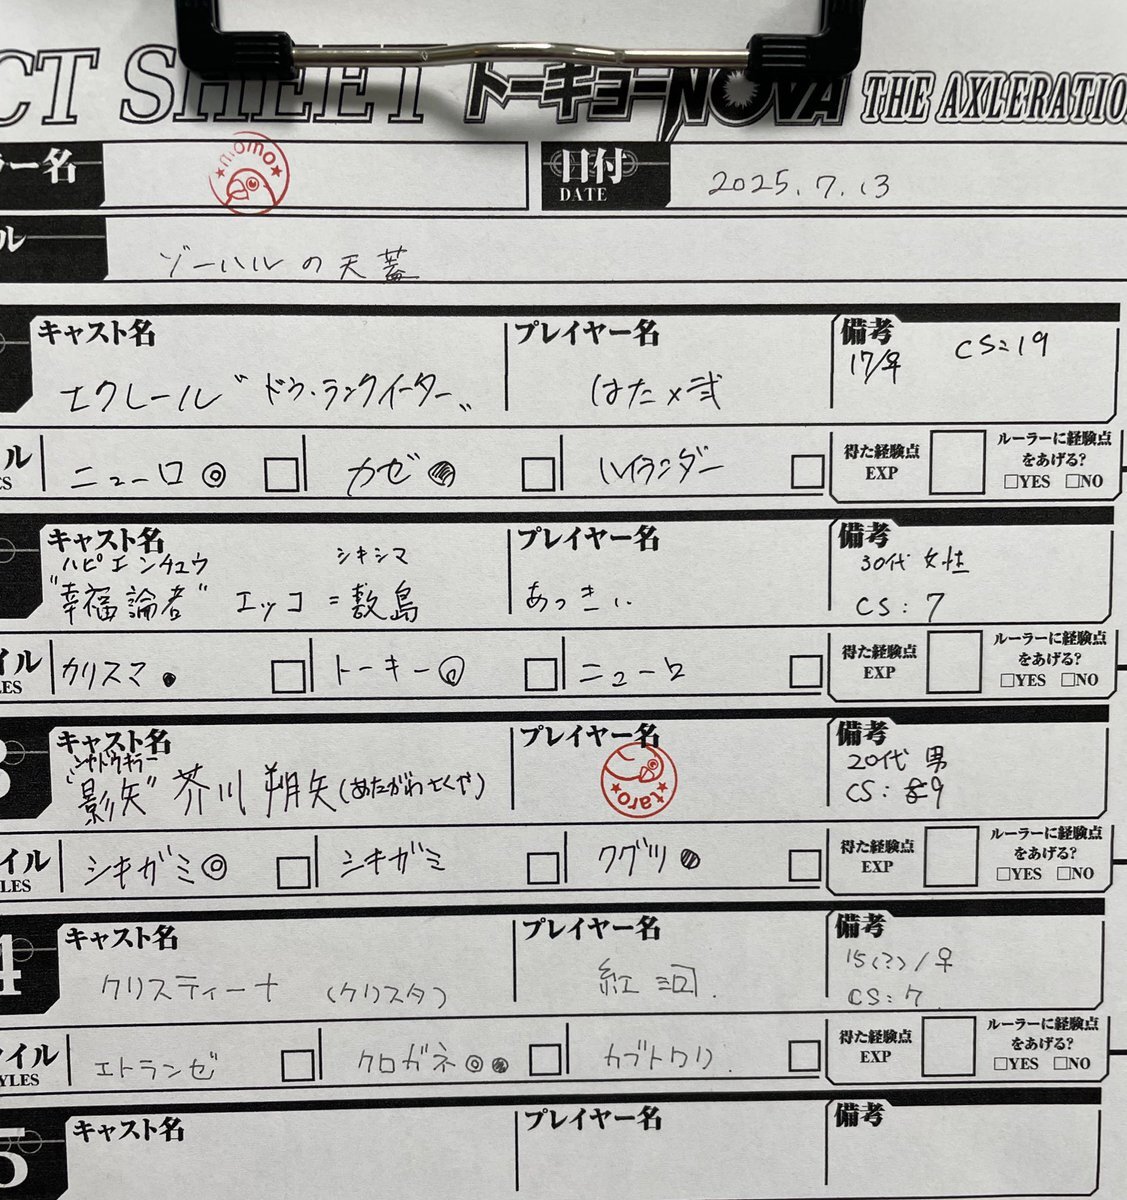 CT SHEET トーキョーNOVA THE AXLERATIO
ラー名 momo 日付 DATE 2025.7.13
ル ゾーハルの天蓋
キャスト名 プレイヤー名 備考
エクレール"ドゥ・ランクイーター" はた×弐 17/♀ CS:19
ル ニューロ◎ □ カゼ● □ ハイランダー □ 得た経験点 EXP ルーラーに経験点をあげる? □YES □NO
キャスト名 プレイヤー名 備考
ハピエンチュウ シキシマ 30代 女性
"幸福論者" エッコ=敷島 あっきぃ CS:7
イル LES カリスマ● □ トーキー◎ □ ニューロ □ 得た経験点 EXP ルーラーに経験点をあげる? □YES □NO
3 キャスト名 プレイヤー名 備考
シャドウキラー 20代 男
"影矢" 芥川 朔矢(あたがわさくや) taro CS:9
イル LES シキガミ◎ □ シキガミ □ クグツ● □ 得た経験点 EXP ルーラーに経験点をあげる? □YES □NO
4 キャスト名 プレイヤー名 備考
クリスティーナ (クリスタ) 紅河. 15(?)/♀
CS:7
イル YLES エトランゼ □ クロガネ◎● □ カブトワリ. □ 得た経験点 EXP ルーラーに経験点をあげる? □YES □NO
5 キャスト名 プレイヤー名 備考